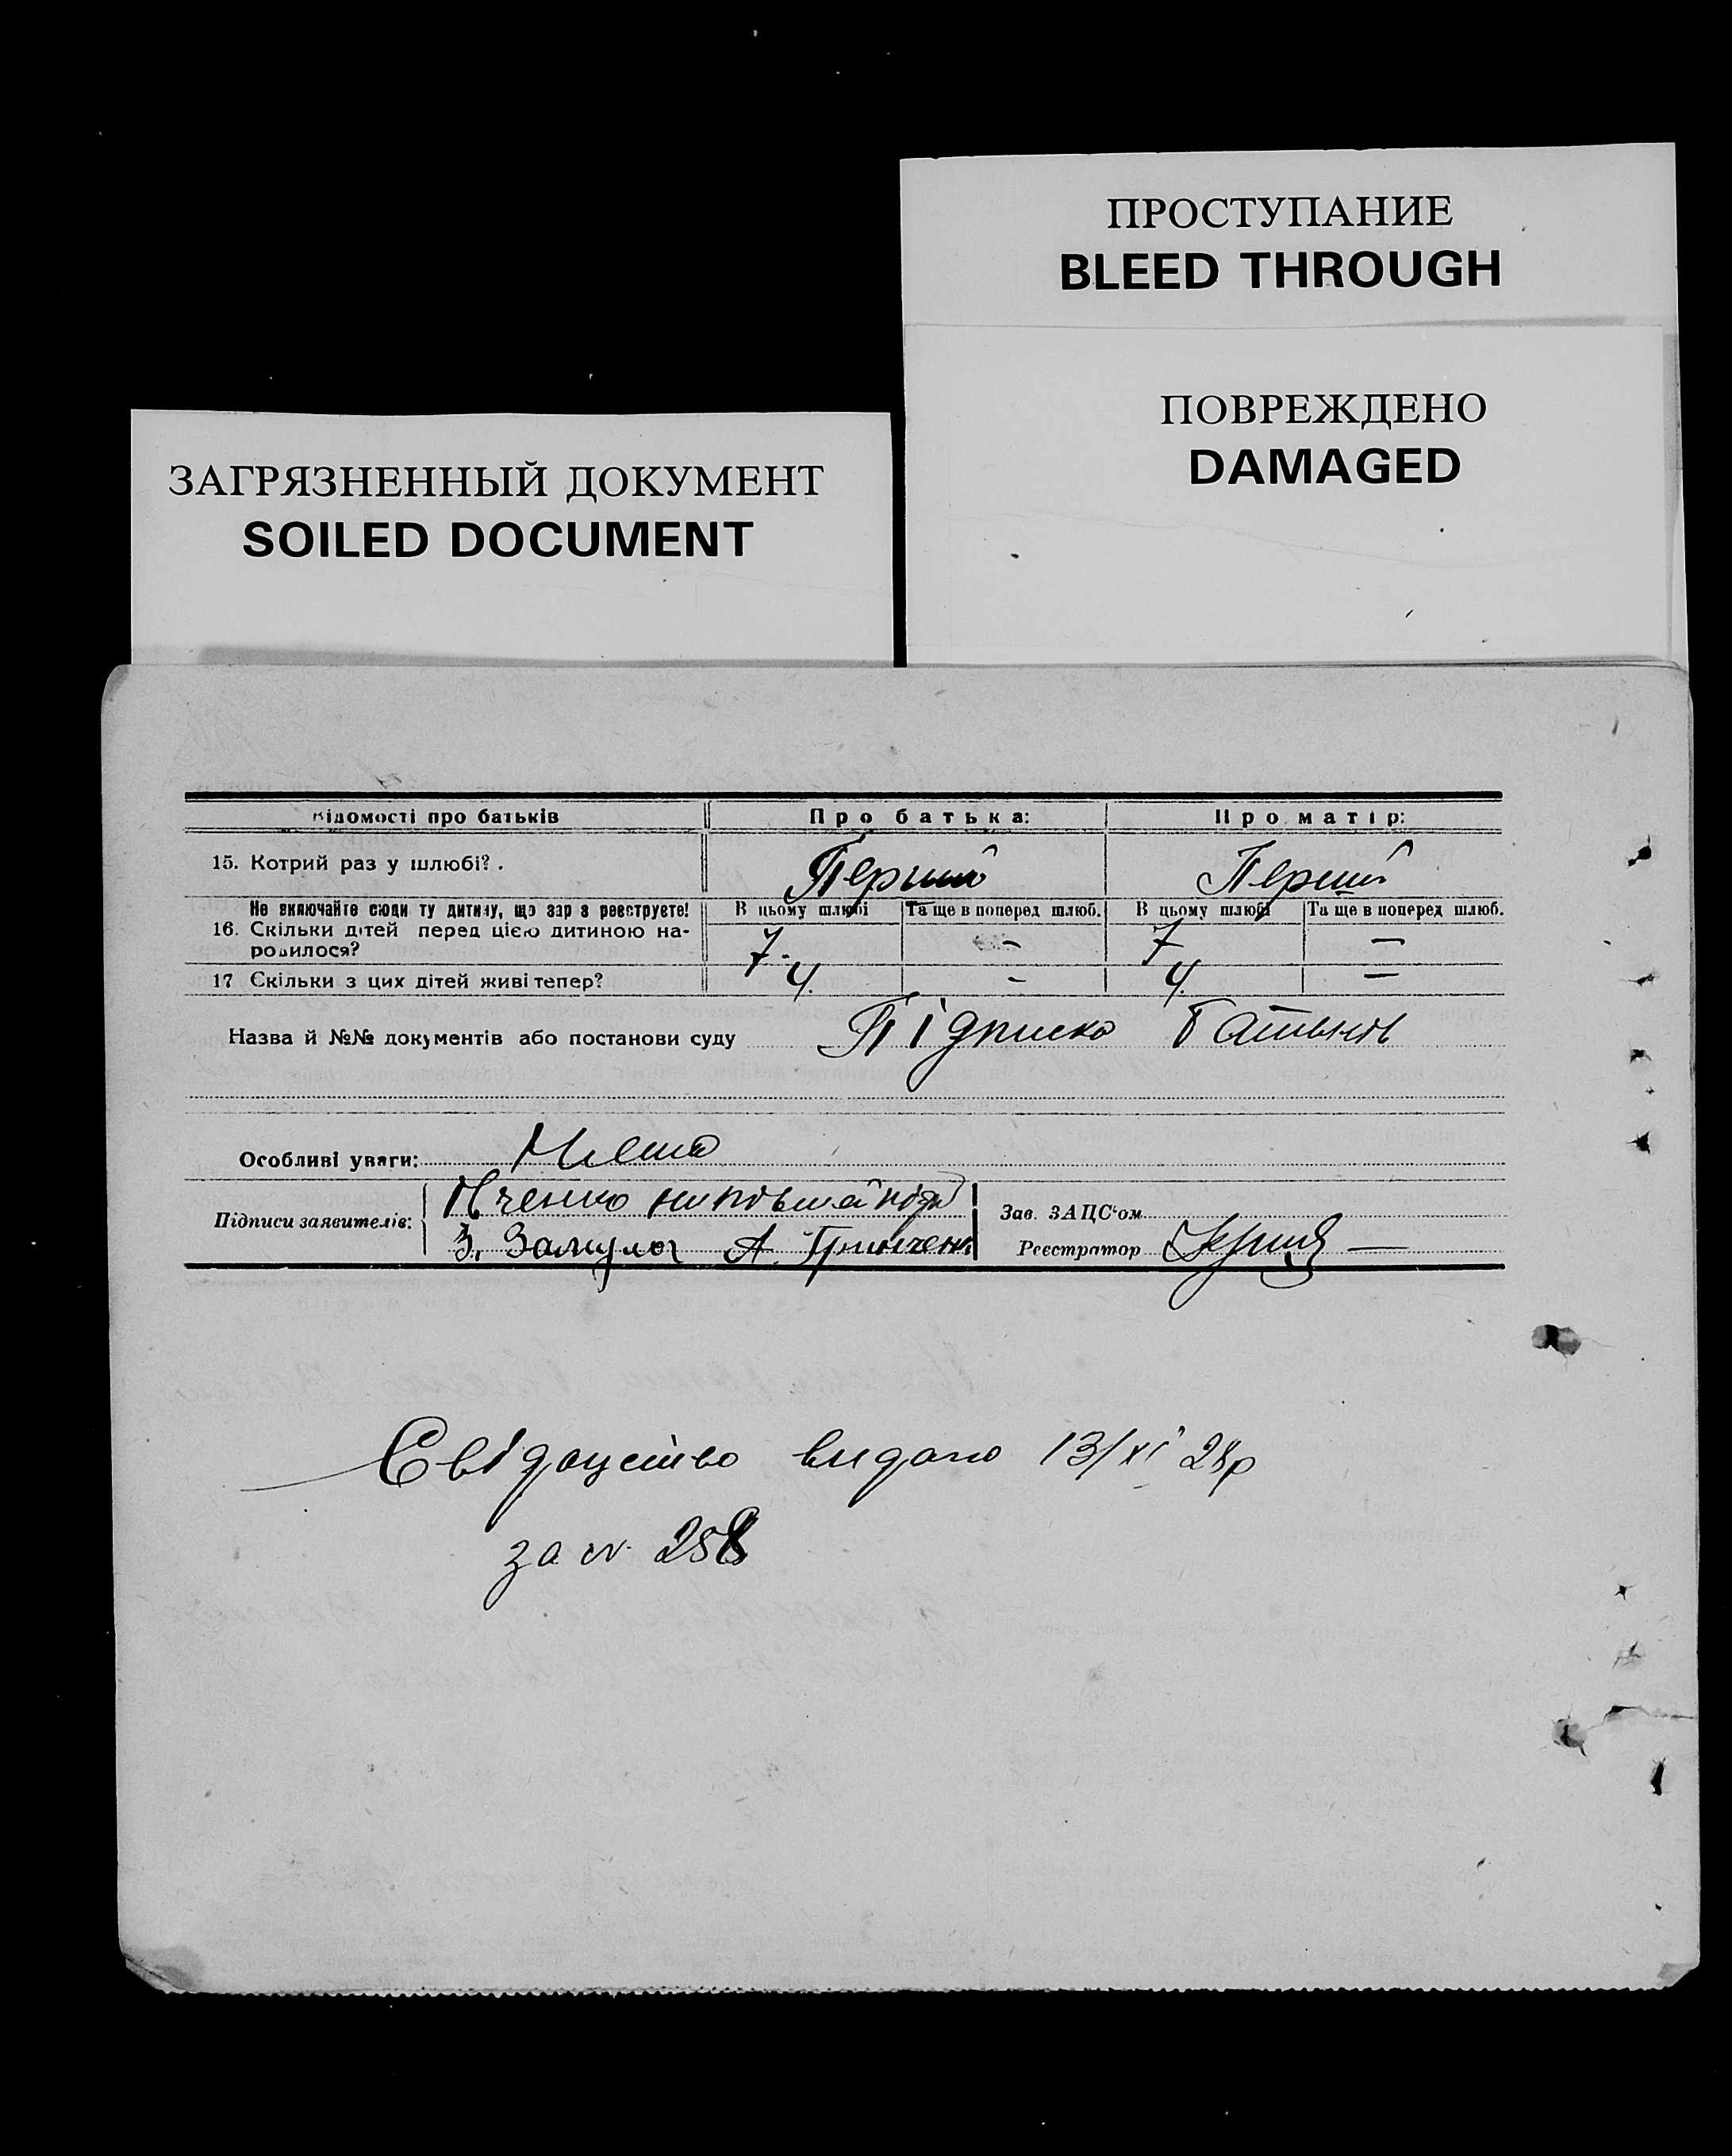 ПРОСТУПАНИЕ
BLEED THROUGH
ПОВРЕЖДЕНО
DAMAGED
ЗАГРЯЗНЕННЫЙ ДОКУМЕНТ
SOILED DOCUMENT
Відомості про батьків Про батька: Про матір:
15. Котрий раз у шлюбі? . Перший Перший
Не включайте сюди ту дитину, що зараз реєструєте! В цьому шлюбі Та ще в поперед шлюб. В цьому шлюбі Та ще в поперед шлюб.
16. Скільки дітей перед цією дитиною на-
родилося? 7. - 7 -
17 Скільки з цих дітей живі тепер? 4. - 4. -
Назва й №№ документів або постанови суду Підписка
Особливі уваги: Нема
Підписи заявителів:
З. А. Гринченк
Зав. ЗАЦС'ом
Реєстратор
Свідоцтво видано 13/XI 28р
за № 258